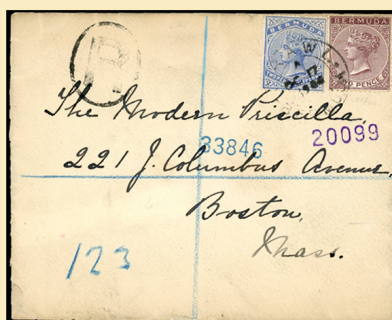 BERMUDA BERMUDA
R
The Modern Priscilla,
33846 20099
221 J. Columbus Avenue,
Boston,
Mass.
123